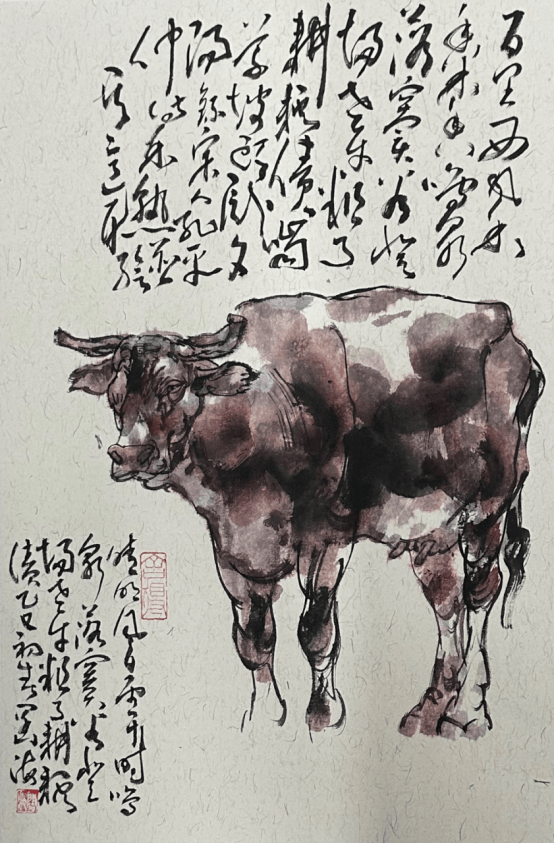 百里西风禾
黍香鸣泉
落窦谷登
场老牛粗了
耕耘债啮
草坡头卧夕
阳录宋人孔平
仲诗禾熟并
晴明风日雨干时鸣
泉落窦谷登
场老牛粗了耕耘
债乙巳初春